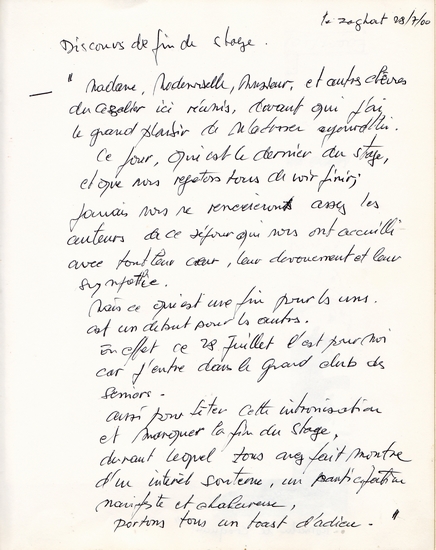 28/7/00
Discours de fin de stage.
" Madame, Mademoiselle, Monsieur, et autres élèves
du ici réunis, devant qui j'ai
le grand plaisir de m'adresser aujourd'hui.
Ce jour, qui est le dernier du stage,
et que nous regrettons tous de voir finir,
jamais nous ne remercierons assez les
auteurs de ce séjour qui nous ont accueilli
avec tout leur cœur, leur dévouement et leur
sympathie.
Mais ce qui est une fin pour les uns.
est un début pour les autres.
En effet ce 28 Juillet l'est pour moi
car j'entre dans le grand club des
seniors.
aussi pour fêter cette intronisation
et marquer la fin du stage,
durant lequel tous avez fait montre
d'un intérêt soutenu, un participation
manifeste et chaleureuse,
portons tous un toast d'adieu. "